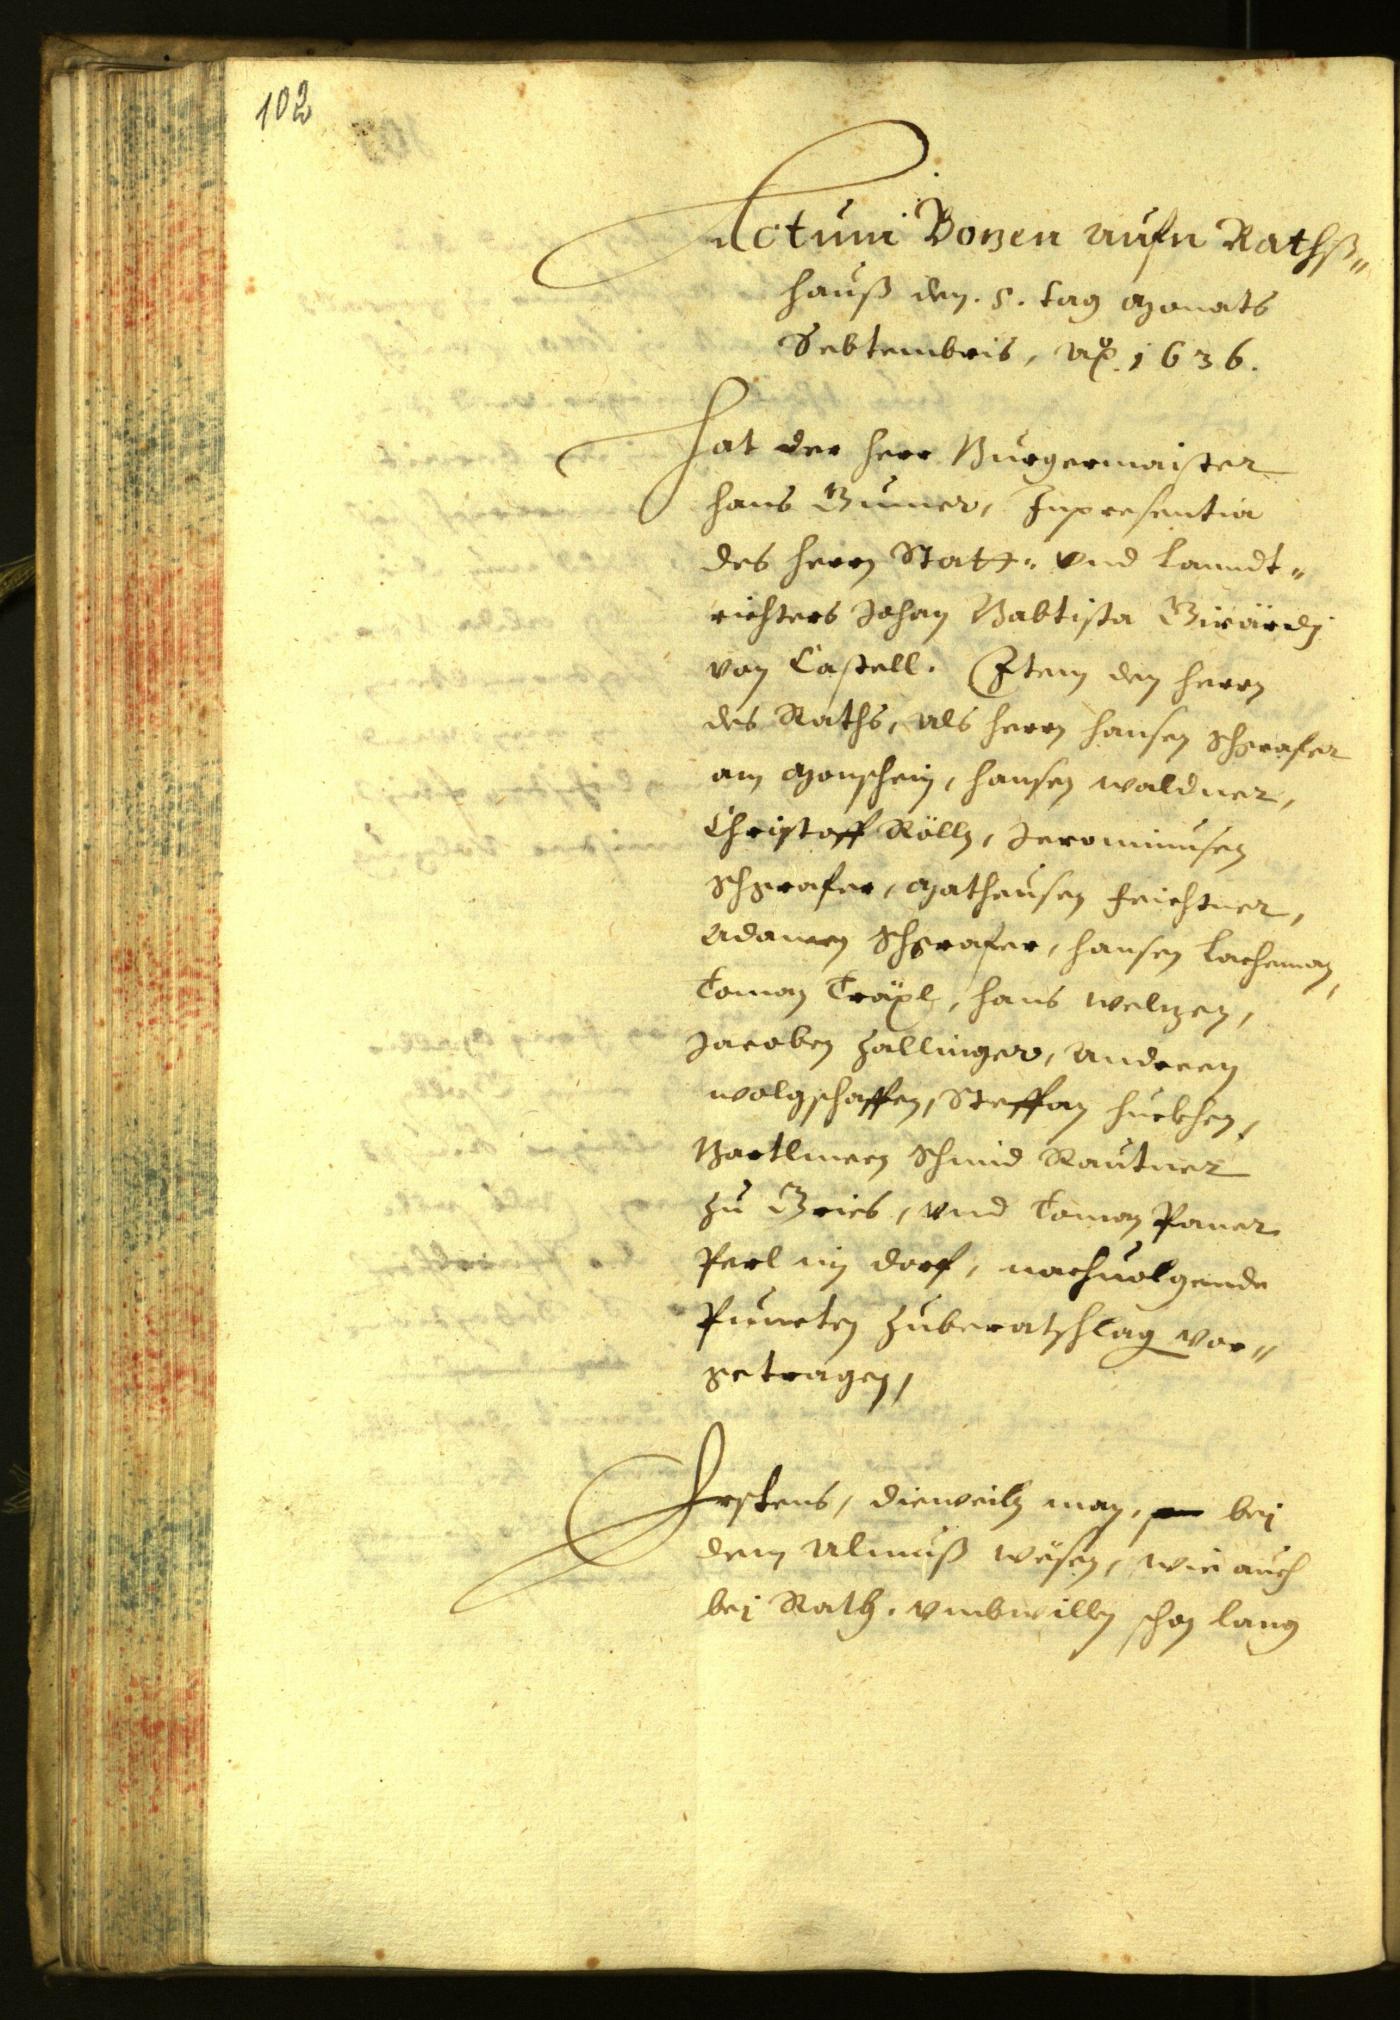 102
Actum Bozen aufn Rathß„
hauß den . 5 . tag Monats
Sebtembris, Ao. 1636.
Hat der herr Burgermaister
hans Gumer, Inpresentia
des herrn Statt„ vnd Lanndt„
richters Johan Babtista Girärdj
von Castell. Item den herrn
des Raths, als herrn hansen Schgrafer
am Monschein, hansen Waldner,
Christoff Röllj, Jeronimusen
Schgrafer, Matheusen Feichtner,
Adamen Schgrafer, hansen Lacheman,
Toman Träxl, hans Welzen,
Jacoben Zallinger, Andreen
Wolgschaffen, Steffan huebhen,
Bartlmeen Schmid Rautner
zu Gries, vnd Toman Pamer
Perl im dorf, nachuolgende
Puncten zuberatschlag vor„
getragen,
Erstens, dieweiln man, bei
dem Almuß wësen, wie auch
bei Rath. vmbwilln schon lang